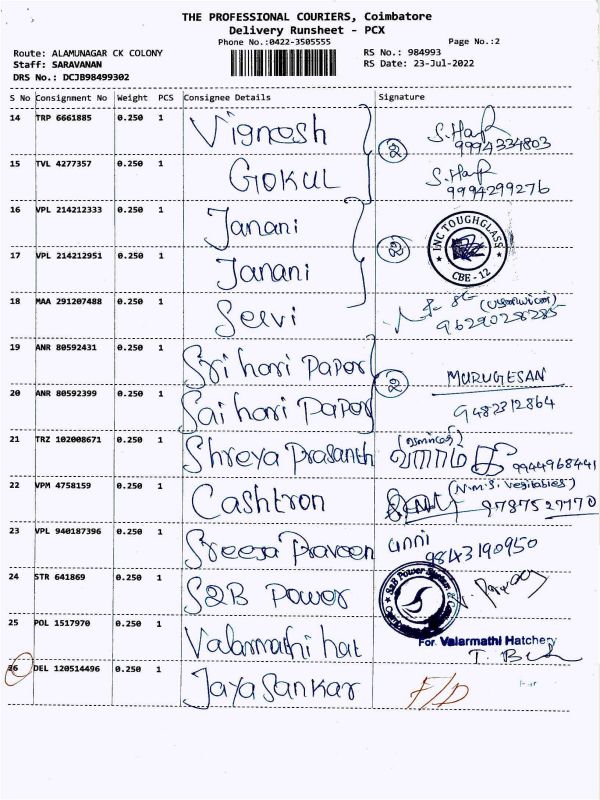 THE PROFESSIONAL COURIERS, Coimbatore
Delivery Runsheet - PCX
Phone No.:0422-3505555 Page No.:2
Route: ALAMUNAGAR CK COLONY RS No.: 984993
Staff: SARAVANAN RS Date: 23-Jul-2022
DRS No.: DCJB98499302
S No Consignment No Weight PCS Consignee Details Signature
14 TRP 6661885 0.250 1 Vignesh 2 9994334803
15 TVL 4277357 0.250 1 GOKUL 9994299276
16 VPL 214212333 0.250 1 Janani 2 INC TOUGHGLASS
17 VPL 214212951 0.250 1 Janani CBE - 12
18 MAA 291207488 0.250 1 Selvi 9629028285
19 ANR 80592431 0.250 1 Sri hari Paper 2 MURUGESAN
20 ANR 80592399 0.250 1 Sai hari Paper 9482312864
21 TRZ 102008671 0.250 1 Shreya Prasanth 9944968441
22 VPM 4758159 0.250 1 Cashtron (N.M.S. Vegitables) 9787527770
23 VPL 940187396 0.250 1 Sreeja Praveen 9843190950
24 STR 641869 0.250 1 S2B Power S&B Power System &
25 POL 1517970 0.250 1 Valarmathi hat For Valarmathi Hatchery
26 DEL 120514496 0.250 1 Jaya Sankar F/D